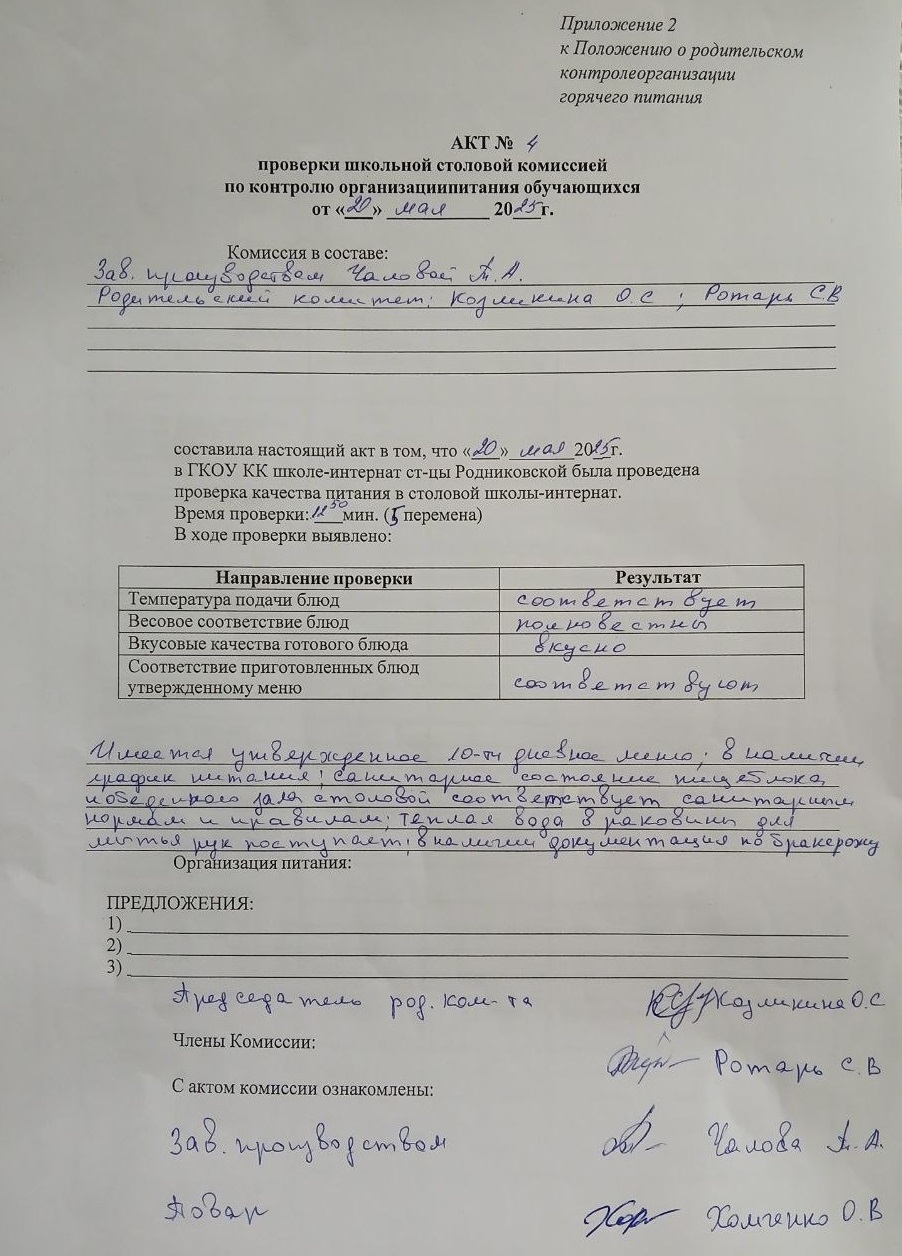 Приложение 2
к Положению о родительском
контролеорганизации
горячего питания
АКТ № 4
проверки школьной столовой комиссией
по контролю организациипитания обучающихся
от «20» мая 2025г.
Комиссия в составе:
Зав. производством Чаловой Т. А.
Родительский комитет: Козликина О.С ; Ротарь С.В
составила настоящий акт в том, что «20» мая 2025г.
в ГКОУ КК школе-интернат ст-цы Родниковской была проведена
проверка качества питания в столовой школы-интернат.
Время проверки: 12 50 мин. (5 перемена)
В ходе проверки выявлено:
Направление проверки Результат
Температура подачи блюд соответствует
Весовое соответствие блюд полновестны
Вкусовые качества готового блюда вкусно
Соответствие приготовленных блюд
утвержденному меню соответствуют
Имеется утвержденное 10-ти дневное меню; в наличии
график питания; санитарное состояние пищеблока
и обеденного зала столовой соответствует санитарным
нормам и правилам; тёплая вода в раковины для
мытья рук поступает; в наличии документация по бракеражу
Организация питания:
ПРЕДЛОЖЕНИЯ:
1)
2)
3)
Председатель род. ком-та Козликина О.С
Члены Комиссии:
Ротарь С.В
С актом комиссии ознакомлены:
Зав. производством Чалова Т. А.
Повар Хомченко О.В